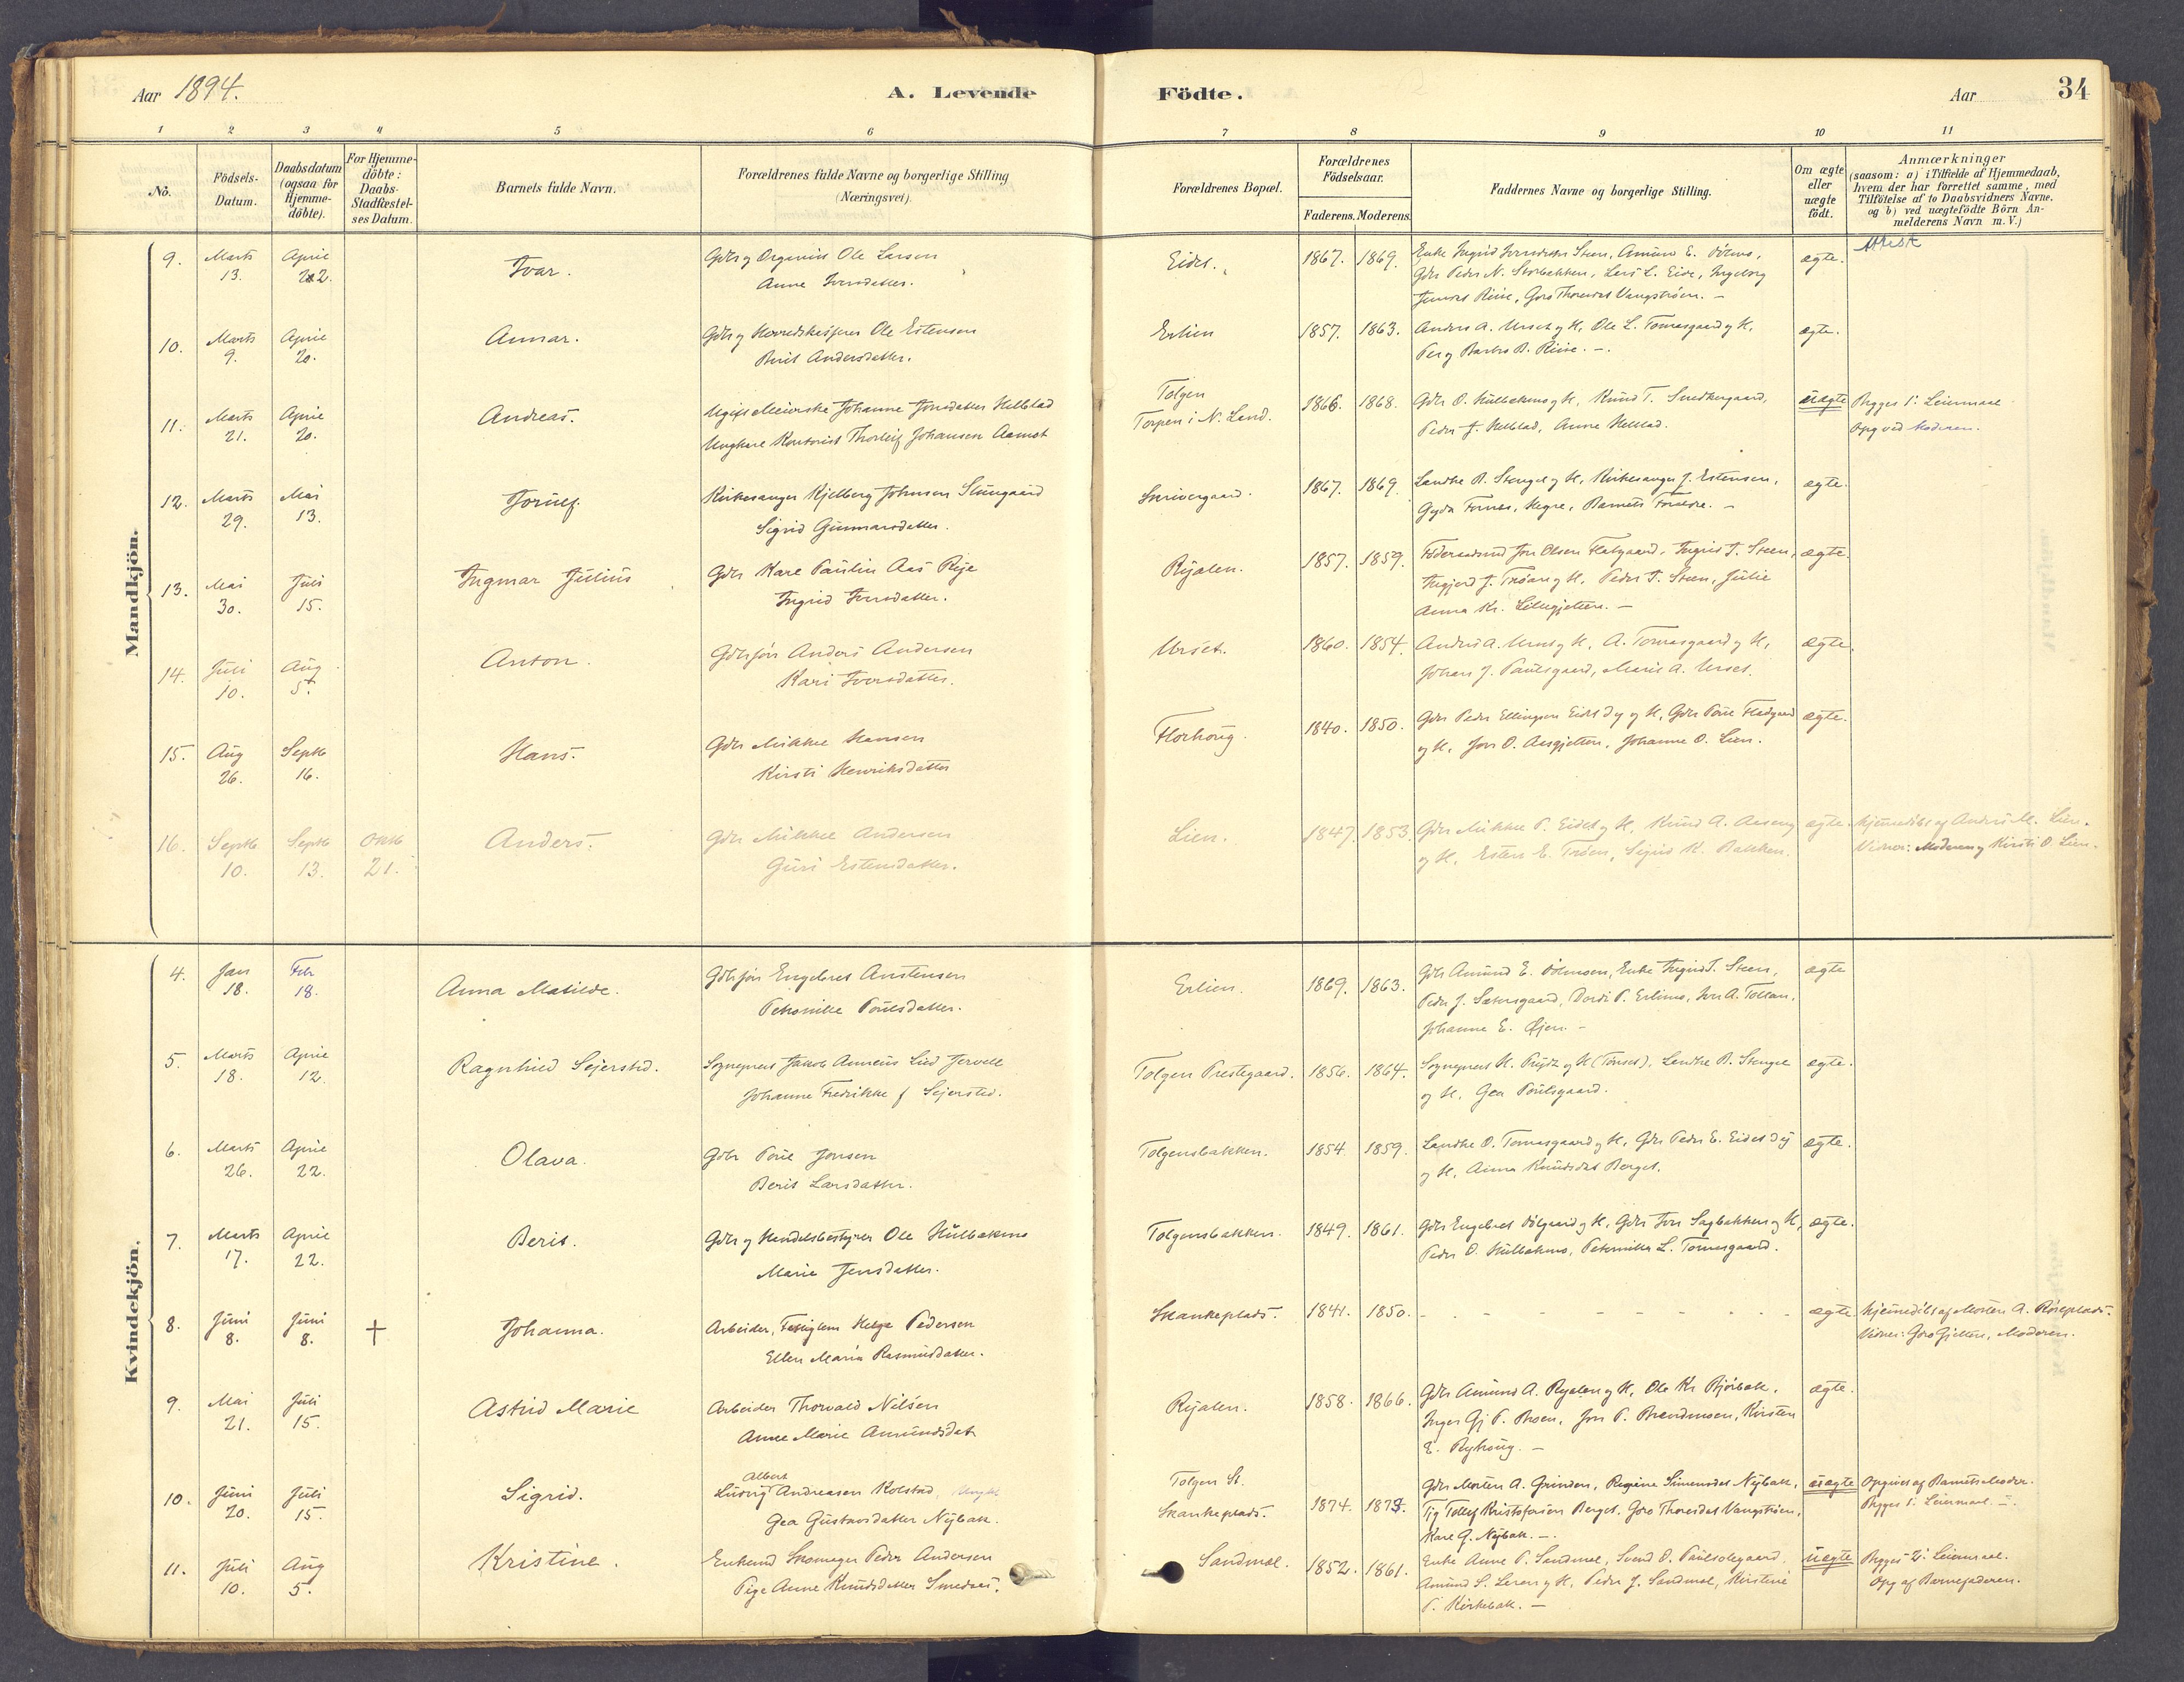 Aar 1894.
A. Levende
Födte.
Aar
34
1 2 3 4 5 6 7 8 9 10 11
No.
Födsels-Datum.
Daabsdatum (ogsaa for Hjemme-döbte).
For Hjemme-döbte: Daabs-Stadfæstel-ses Datum.
Barnets fulde Navn.
Forældrenes fulde Navne og borgerlige Stilling (Næringsvei).
Forældrenes Bopæl.
Forældrenes Födselsaar.
Faderens. Moderens.
Faddernes Navne og borgerlige Stilling.
Om ægte eller uægte födt.
Anmærkninger
(saasom: a) i Tilfælde af Hjemmedaab,
hvem der har forrettet samme, med
Tilföielse af to Daabsvidners Navne.
og b) ved uægtefödte Börn An-
melderens Navn m.V.)
Mandkjön.
9. Marts 13. April 22. Ivar. Gdbr og Organist Ole Larsen
Anne Iversdatter.
Eidet. 1867. 1869. Enke Ingrid Steen, Amund E.
Gdbr Peder N. Storbakken, Lars L. Eide, Ingeborg
Riise, Goro Thoresdat Vangströen. —
ægte. Attest
10. Marts 9. April 20. Annar. Gdbr og Ole Estensen
Berit Andersdatter.
Erlien 1857. 1863. Anders A. Urset og H, Ole L. Tomasgaard og H,
Per og Barbro B. Riise. —.
ægte.
11. Marts 21. April 20. Andreas. Ugift Meierske Johanne Jonsdatter Helblad
Ungkarl Kontorist Thorleif Johansen Aamot
Tolgen
Torpen i N. Land.
1866. 1868. Gdbr O. Hulbækmo og H, Knud T.
Peder J. Helblad, Anne Helblad.
uægte Begges 1ste Leiermaal
Opg ved Moderen.
12. Marts 29. Mai 13. Torulf. Kirkesanger Kjelberg Johnsen Stuugaard
Sigrid Gunnarsdatter.
Skrivergaard. 1867. 1869. Landhr B. Stengel og H, Kirkesanger J. Estensen,
Gyda Fornes, Hegre, Barnets Forældre. —
ægte.
13. Mai 30. Juli 15. Ingmar Julius Gdbr Karl Paulin Aas Rije
Ingrid Iversdatter.
Rijalen. 1857. 1859. Föderaadsmd Jon Olsen Flatgaard, Ingrid T. Steen,
J. Tröan og H, Peder T. Steen, Julie
Anna Kr. Lillegjelten. —
ægte.
14. Juli 10. Aug 5. Anton. Gdbrsön Anders Andersen
Kari Iversdatter.
Urset. 1860. 1854. Anders A. Urset og H, A. Tomasgaard og H,
Johan J. Paulsgaard, Marie A. Urset.
ægte.
15. Aug 26. Septb 16. Hans. Gdbr Mikkel Hansen
Kirsti Henriksdatter
Florhoug. 1840. 1850. Gdbr Peder Ellingsen Eidet og H, Gdbr Poul Fladgaard
og H, Jon O. Aasgjelten, Johanne O. Lien.
ægte.
16. Septb 10. Septb 13. Oktb 21. Anders. Gdbr Mikkel Andersen
Guri Estensdatter.
Lien. 1847. 1853. Gdbr Mikkel P. Eidet og H, Knud A. Aaseng
og H, Esten E. Tröen, Sigrid K. Bakken.
ægte. Hjemmedöbt af Anders M. Lien.
Vidner: Moderen og Kirsti O. Lien.
Kvindekjön.
4. Jan 18. Febr 18. Anna Matilde. Gdbrsön Engebret Austensen
Petronille Poulsdatter.
Erlien. 1869. 1863. Gdbr Amund E. Enke Ingrid T. Steen,
Peder J. Dordi P. Erlimo, Iver A. Tollan,
Johanne E. Öien. —
ægte
5. Marts 18. April 12. Ragnhild Sejersted. Sogneprest Jakob Anneus Lind Jervell
Johanne Fredrikke f Sejersted.
Tolgen Prestegaard. 1856. 1864. Sogneprest H. Prydz og H (Tönset), Landhr B. Stengel
og H, Gea Poulsgaard.
ægte.
6. Marts 26. April 22. Olava. Gdbr Poul Jonsen
Berit Larsdatter.
Tolgensbakken. 1854. 1859. Landhr O. Tomasgaard og H, Gdbr Peder E. Eidet
og H, Anna Knudsdat Berget.
ægte.
7. Marts 17. April 22. Berit. Gdbr og Handelsbestyrer Ole Hulbækmo
Marie Jensdatter.
Tolgensbakken. 1849. 1861. Gdbr Engebret og H, Gdbr Iver Sagbakken og H,
Peder O. Hulbækmo, Petronille L. Tomasgaard.
ægte.
8. Juni 8. Juni 8. † Johanna. Arbeider, Helge Pedersen
Ellen Maria Rasmusdatter.
Skankeplads. 1841. 1850. - - - - - -
ægte. Hjemmedöbt af Morten A. Röseplads.
Vidner: Goro Gjelten, Moderen.
9. Mai 21. Juli 15. Astrid Marie Arbeider Thorvald Nilsen
Anne Marie Amundsdat
Rijalen. 1858. 1866. Gdbr Amund A. Ryalen og H, Ole Kr Björbak,
Inger Gj P. Moen, Jon P. Brændmoen, Kirsten
E. Ryhoug. —
ægte.
10. Juni 20. Juli 15. Sigrid. Albert
Ludvig Andreasen Kolstad, Ungk.
Gea Gustavsdatter Nybak.
Tolgen St.
Skankeplads.
1874. 1873. Gdbr Morten A. Grinden, Regine Simensdat Nybak,
Kristofersen Berget, Goro Thoresdat Vangströen,
Karl G. Nybak. —.
uægte Opgivet af Barnets Moder.
Begges 1. Leiermaal.
11. Juli 10. Aug 5. Kristine. Enkemd Skomager Peder Andersen
Pige Anne Knudsdatter Smedaas.
Sandmæl. 1852. 1861. Enke Anne P. Sandmæl, Svend O. Paulsolegaard,
Amund S. Leren og H, Peder J. Sandmæl, Kirstine
P. Kirkebak. —
uægte Begges 2. Leiermaal.
Opg af Barnefaderen.